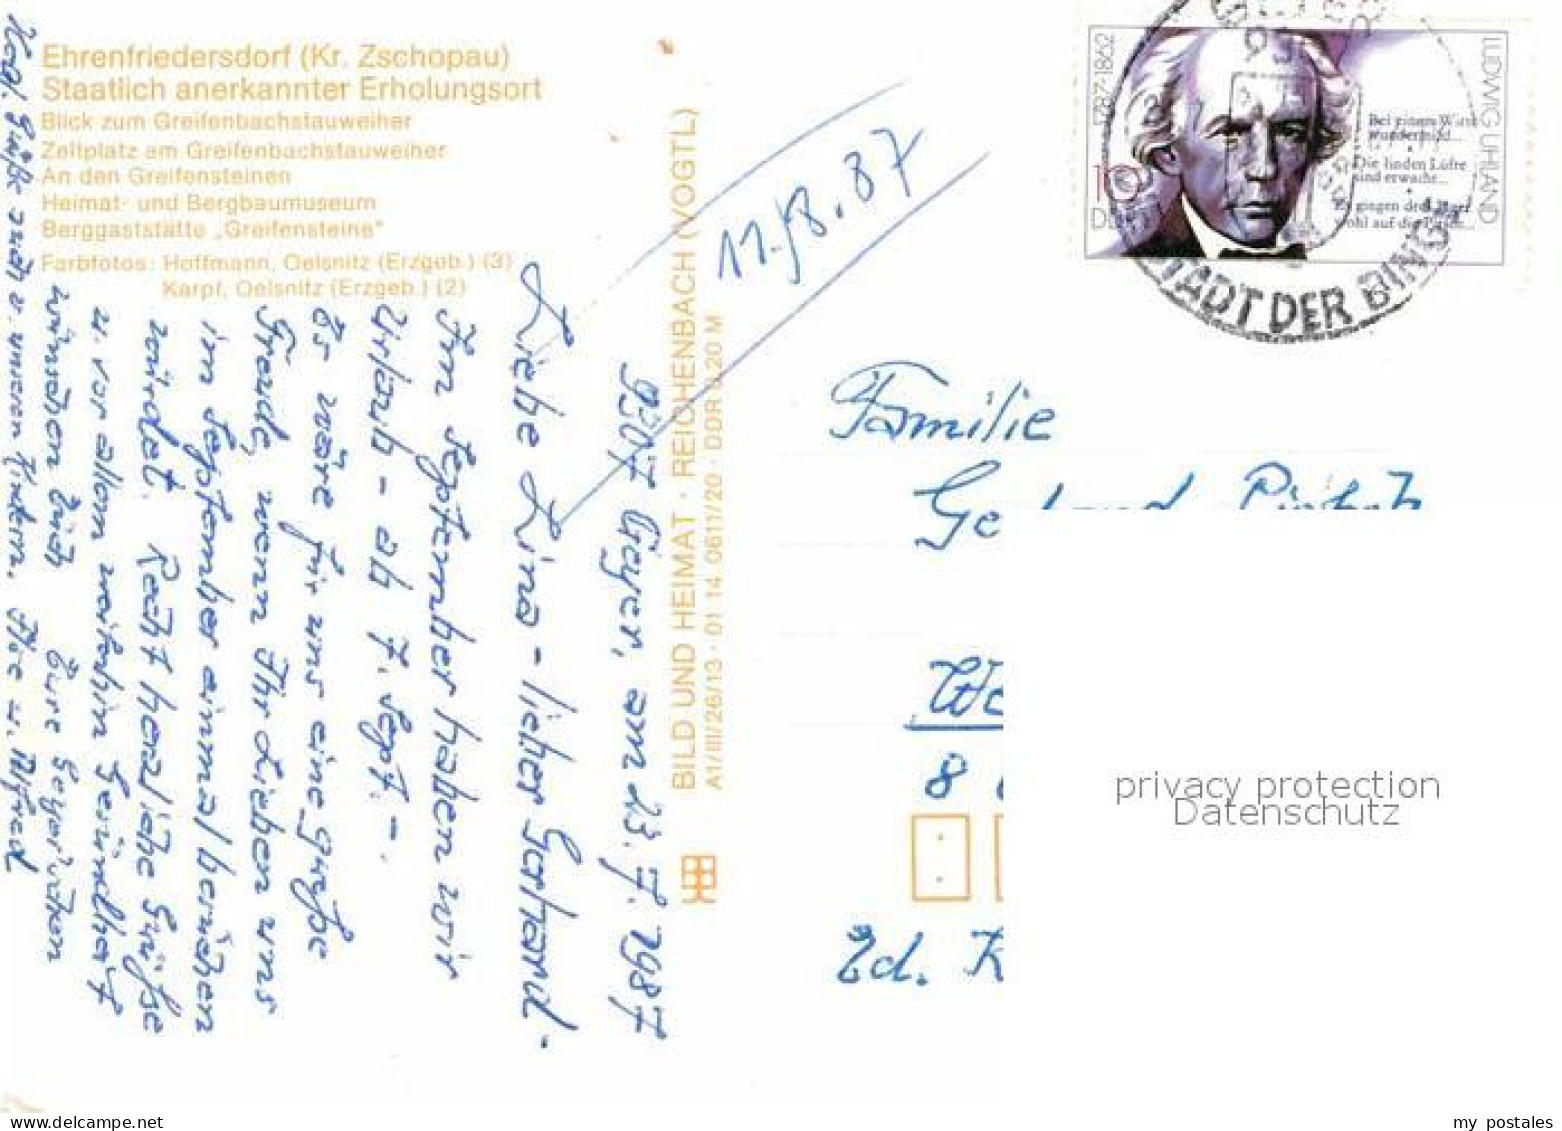 Ehrenfriedersdorf (Kr. Zschopau)
Staatlich anerkannter Erholungsort
Blick zum Greifenbachstauweiher
Zeltplatz am Greifenbachstauweiher
An den Greifensteinen
Heimat- und Bergbaumuseum
Berggaststätte „Greifensteine"
Farbfotos: Hoffmann, Oelsnitz (Erzgeb.) (3)
Karpf, Oelsnitz (Erzgeb.) (2)
BILD UND HEIMAT · REICHENBACH (VOGTL)
A1/III/26/13 · 01 14 0611/20 · DDR 0,20 M
11./8.87
Geyer, am 23.7.1987
Liebe Lina - lieber Gerhard -
Im September haben wir
Urlaub - ab 7. Sept. -.
Es wäre für uns eine große
Freude, wenn Ihr Lieben uns
im September einmal besuchen
würdet. Recht herzliche Grüße
u. vor allem weiterhin Gesundheit
wünschen Euch Eure
Grüße auch v. unseren Kindern. u. Alfred
1787-1862
LUDWIG UHLAND
Bei einem Wirte
wundermild...
Die linden Lüfte
sind erwacht...
Es gingen drei Jäger
wohl auf die Pirsch...
10
DDR
STADT DER BIN
Familie
Ge
8
privacy protection
Datenschutz
my postales